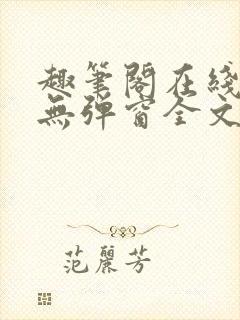 趣筆閣在綫
無彈窗全文
范麗芳